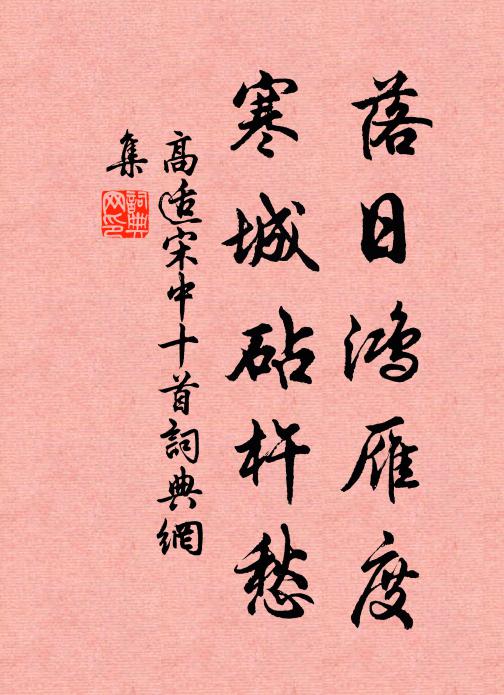 落日鸿雁度
寒城砧杵愁
高适宋中十首詞典網
集
詞典
网印